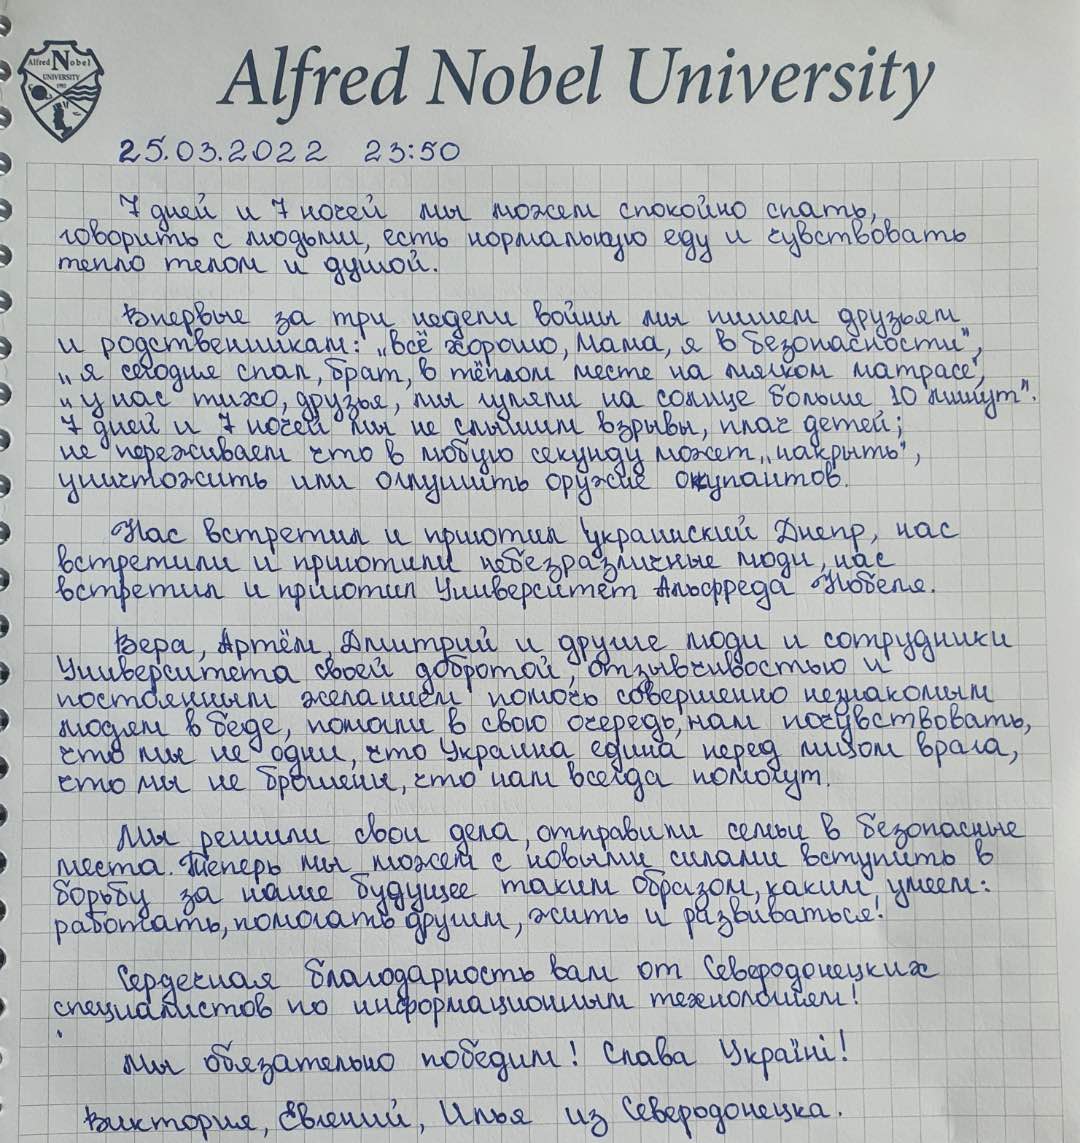 Alfred Nobel
UNIVERSITY
Alfred Nobel University
25.03.2022 23:50
7 дней и 7 ночей мы можем спокойно спать,
говорить с людьми, есть нормальную еду и чувствовать
тепло телом и душой.
Впервые за три недели войны мы пишем друзьям
и родственникам: „всё хорошо, мама, я в безопасности",
„я сегодня спал, брат, в тёплом месте на мягком матрасе",
„у нас тихо, друзья, мы гуляли на солнце больше 10 минут".
7 дней и 7 ночей мы не слышим взрывы, плач детей;
не переживаем что в любую секунду может „накрыть",
уничтожить или оглушить оружие окупантов.
Нас встретил и приютил украинский Днепр, нас
встретили и приютили небезразличные люди, нас
встретил и приютил Университет Альфреда Нобеля.
Вера, Артём, Дмитрий и другие люди и сотрудники
Университета своей добротой, отзывчивостью и
постоянным желанием помочь совершенно незнакомым
людям в беде, помогли в свою очередь, нам почувствовать,
что мы не одни, что Украина едина перед лицом врага,
что мы не брошены, что нам всегда помогут.
Мы решили свои дела, отправили семьи в безопасные
места. Теперь мы можем с новыми силами вступить в
борьбу за наше будущее таким образом, каким умеем:
работать, помогать другим, жить и развиваться!
Сердечная благодарность вам от Северодонецких
специалистов по информационным технологиям!
Мы обязательно победим! Слава Україні!
Виктория, Евгений, Илья из Северодонецка.